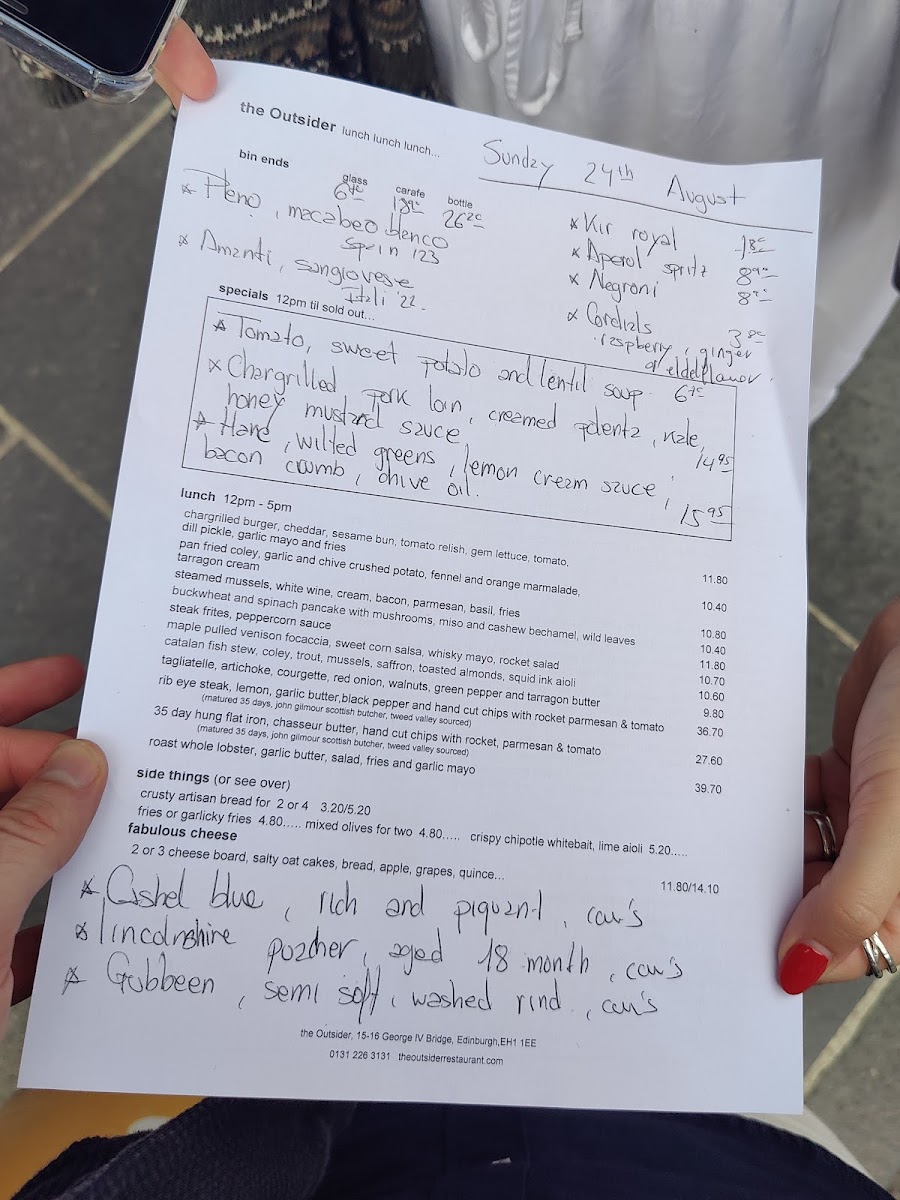 the Outsider lunch lunch lunch...
Sunday 24th August
bin ends
glass carafe bottle
* Pleno, macabeo blanco
Spain 123
* Amanti, sangiovese
Itali '22.
* Kir royal
* Aperol spritz
* Negroni
* Cordials
raspberry, ginger
specials 12pm til sold out...
* Tomato, sweet potato and lentil soup
* Chargrilled pork loin, creamed polenta, kale,
honey mustard sauce 14.95
* Hake, wilted greens, lemon cream sauce,
bacon crumb, chive oil. 15.95
lunch 12pm - 5pm
chargrilled burger, cheddar, sesame bun, tomato relish, gem lettuce, tomato,
dill pickle, garlic mayo and fries 11.80
pan fried coley, garlic and chive crushed potato, fennel and orange marmalade,
tarragon cream 10.40
steamed mussels, white wine, cream, bacon, parmesan, basil, fries 10.80
buckwheat and spinach pancake with mushrooms, miso and cashew bechamel, wild leaves 10.40
steak frites, peppercorn sauce 11.80
maple pulled venison focaccia, sweet corn salsa, whisky mayo, rocket salad 10.70
catalan fish stew, coley, trout, mussels, saffron, toasted almonds, squid ink aioli 10.60
tagliatelle, artichoke, courgette, red onion, walnuts, green pepper and tarragon butter 9.80
rib eye steak, lemon, garlic butter,black pepper and hand cut chips with rocket parmesan & tomato 36.70
(matured 35 days, john gilmour scottish butcher, tweed valley sourced)
35 day hung flat iron, chasseur butter, hand cut chips with rocket, parmesan & tomato 27.60
(matured 35 days, john gilmour scottish butcher, tweed valley sourced)
roast whole lobster, garlic butter, salad, fries and garlic mayo 39.70
side things (or see over)
crusty artisan bread for 2 or 4 3.20/5.20
fries or garlicky fries 4.80..... mixed olives for two 4.80..... crispy chipotle whitebait, lime aioli 5.20.....
fabulous cheese
2 or 3 cheese board, salty oat cakes, bread, apple, grapes, quince... 11.80/14.10
* Cashel blue, rich and piquant, cow's
* lincolnshire poacher, aged 18 month, cow's
* Gubbeen, semi soft, washed rind, cow's
the Outsider, 15-16 George IV Bridge, Edinburgh,EH1 1EE
0131 226 3131 theoutsiderrestaurant.com